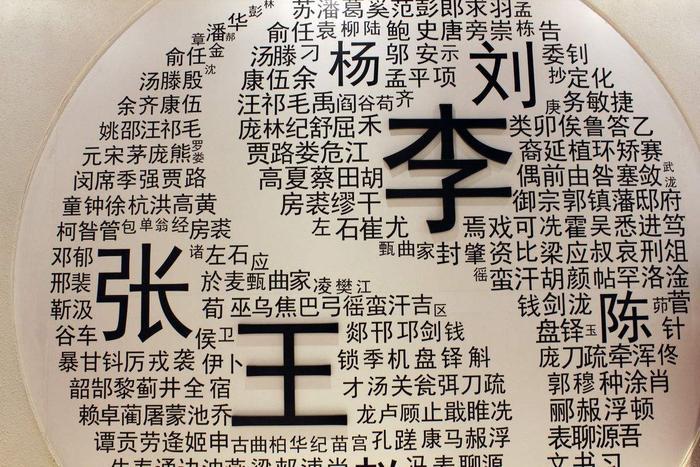 华 彭 林 苏潘葛奚范彭郎求羽孟
章 潘 郝 俞任袁柳陆 鲍 史唐旁崇栋 告
俞任金 汤滕刁 杨 邬 安示 刘 委钊
汤滕殷 沈 康伍余 孟平项 抄定化
余齐康伍 汪祁毛禹阎谷荀齐 庚务敏捷
姚邵汪祁毛 庞林纪舒屈禾 李 类卯俟鲁答乙
元宋茅庞熊罗娄 贾路娄危江 裔延植环矫赛
闵席季强贾路 高夏蔡田胡 偶前由昝塞敛武泷
童钟徐杭洪高黄 房裘缪干 御宗郭镇潘邸府
柯昝管包单翁经房裘 左 石崔尤 焉戏可冼霍吴悉进笃
邓郁 张 诸左石应 甄曲家封肇资比梁应叔哀刑俎
邢裴 於麦甄曲家凌樊江 徭蛮汗胡颜帖罕洛淦
靳汲 荀巫乌焦巴弓徭蛮汗吉区 钱剑泷 陈 茆菅
谷车 侯卫 王 郯邗邛剑钱 盘铎玉 针
暴甘钭厉戎袭 伊卜 锁季机盘铎斛 庞刀疏牵浑佟
韶郜黎蓟井全宿 才汤关瓮弭刀疏 郭穆种涂肖
赖卓蔺屠蒙池乔 龙卢顾止戢睢冼 郦郝浮顿
谭贡劳逄姬申古曲柏华纪苗宫孔蹉康马郝浮 表聊源吾
冯麦聊源 文书习